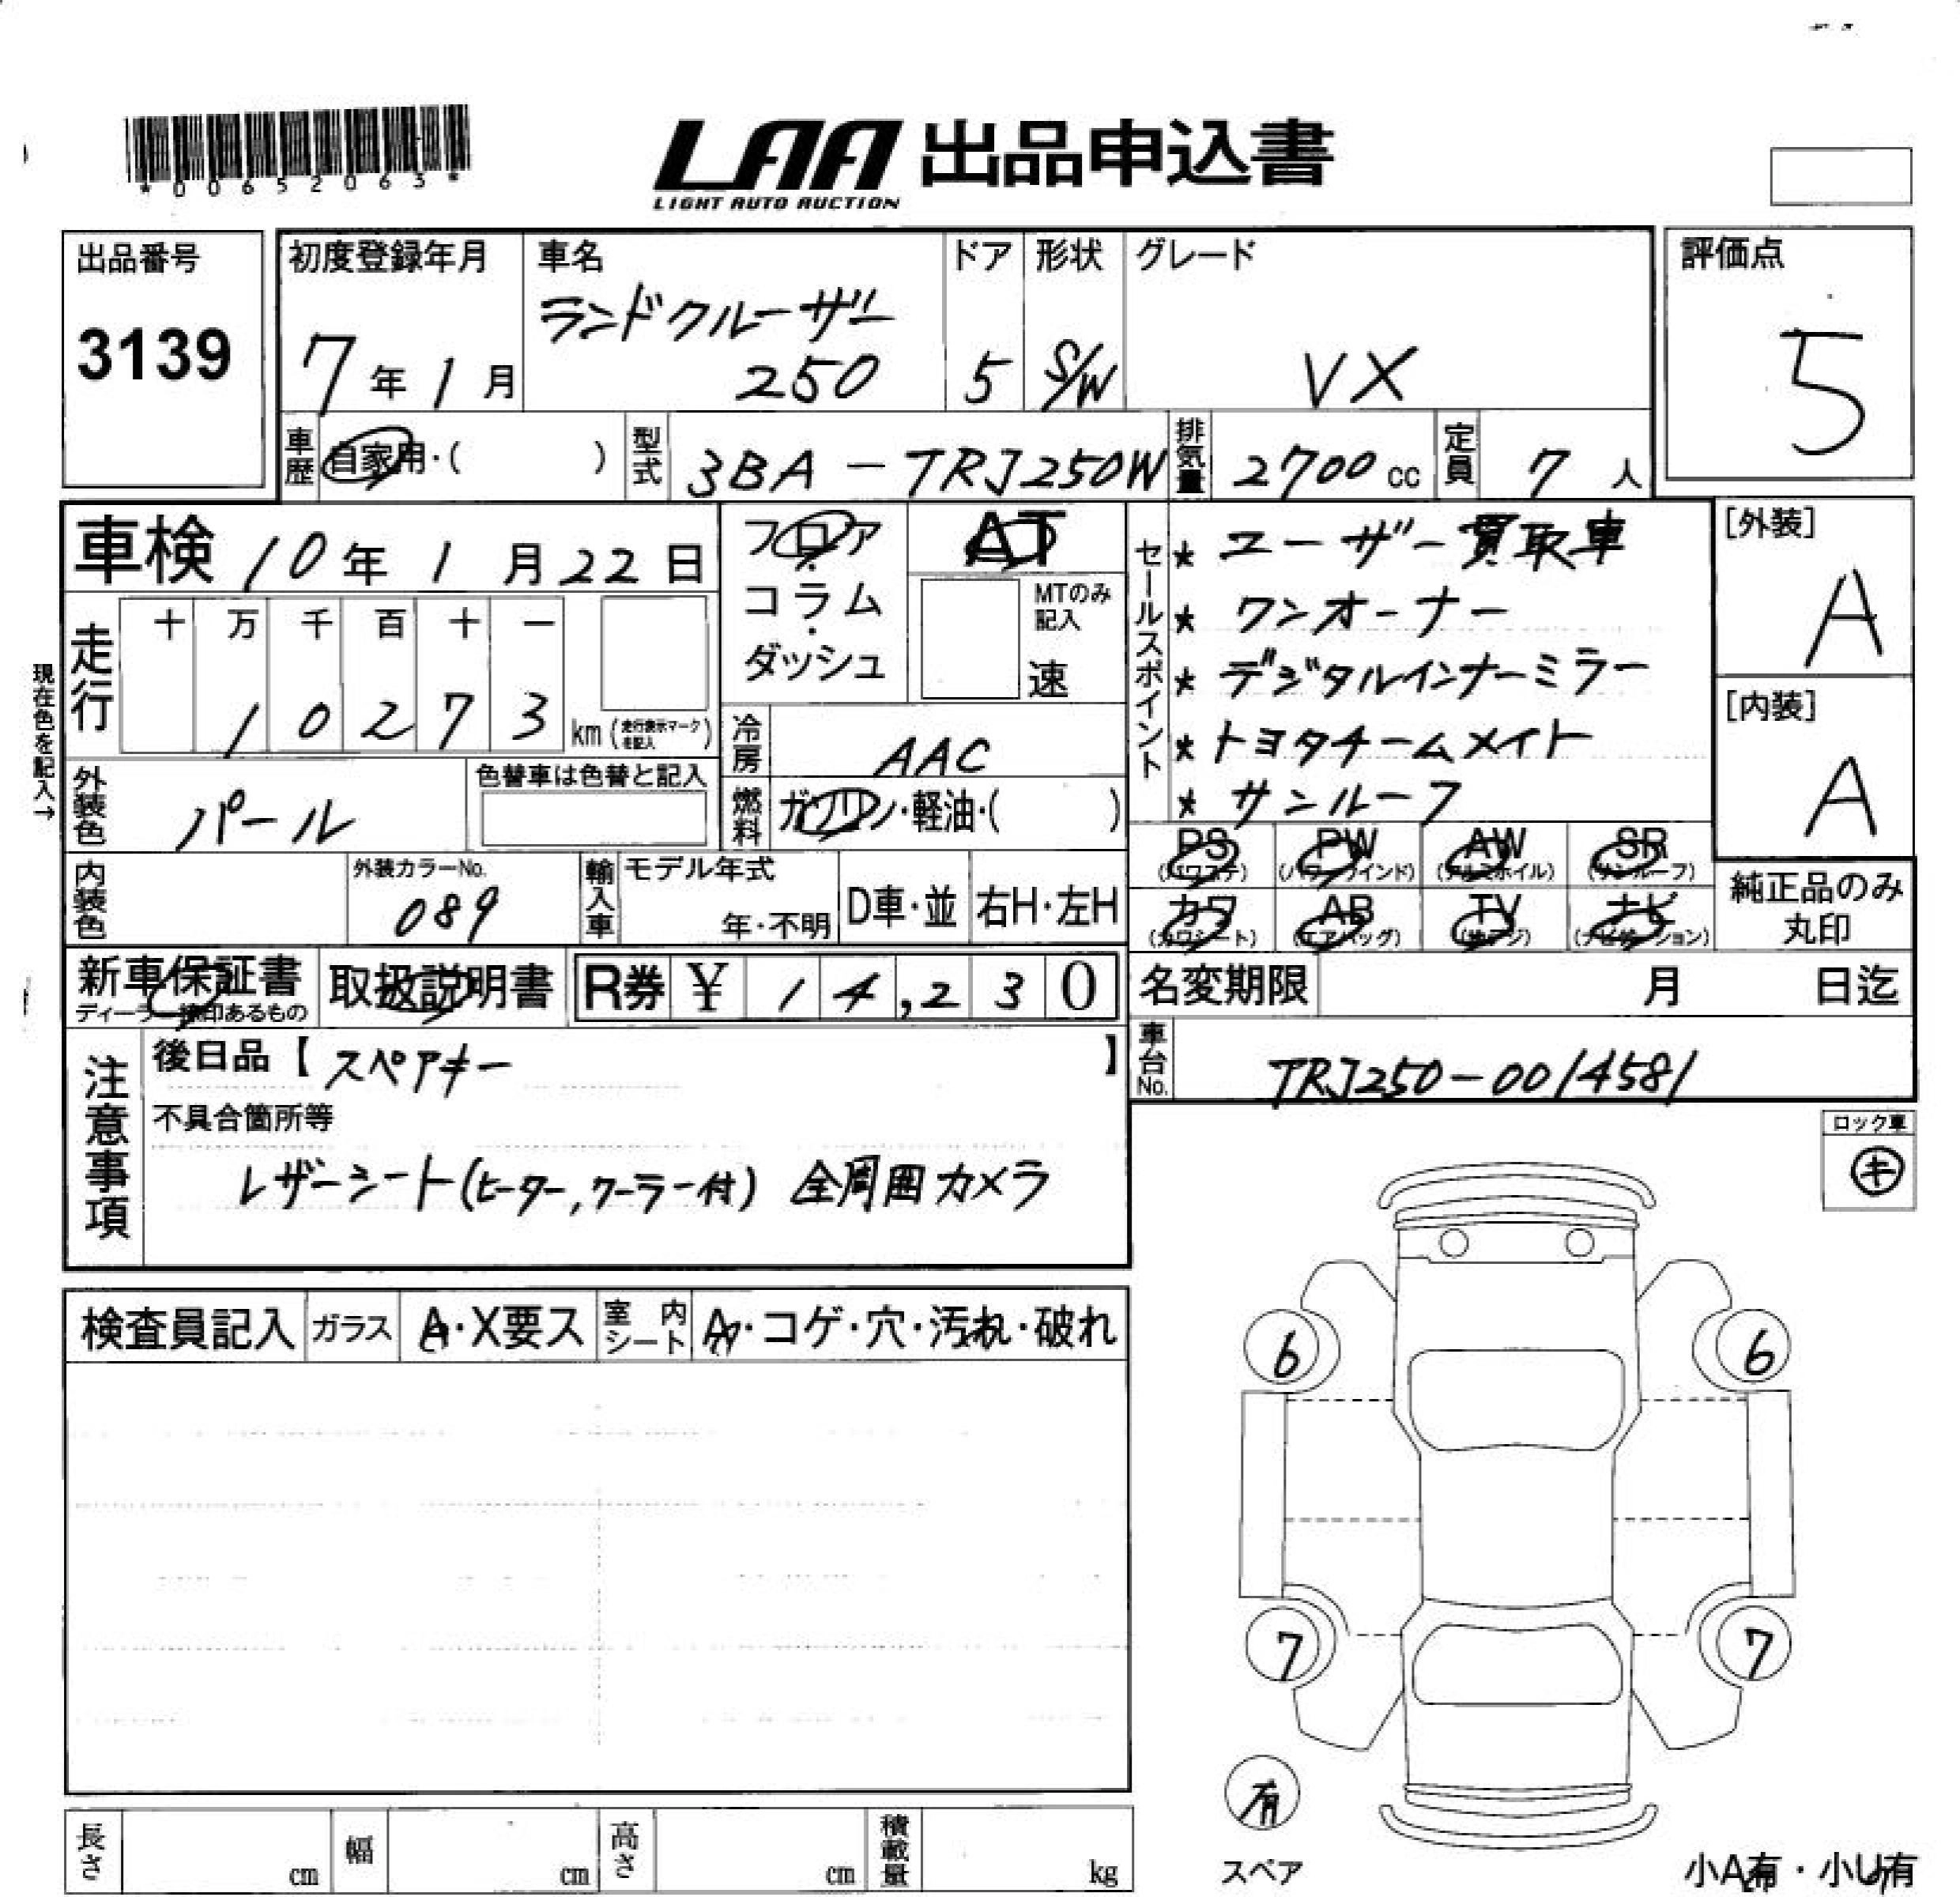 *00652063*
LAA 出品申込書
LIGHT AUTO AUCTION
出品番号
3139
初度登録年月
7年1月
車名
ランドクルーザー
250
ドア
5
形状
S/W
グレード
VX
評価点
5
車歴
自家用・( )
型式
3BA-TRJ250W
排気量
2700cc
定員
7人
車検 10年1月22日
フロア・コラム・ダッシュ
AT
MTのみ記入
速
セールスポイント
★ ユーザー買取車
★ ワンオーナー
★ デジタルインナーミラー
★ トヨタチームメイト
★ サンルーフ
[外装]
A
[内装]
A
現在色を記入→
走行
十 万 千 百 十 一
1 0 2 7 3
km (走行表示マークを記入)
冷房
AAC
外装色
パール
色替車は色替と記入
燃料
ガソリン・軽油・( )
PS PW AW SR
(パワステ) (パワーウインド) (アルミホイル) (サンルーフ)
カワ AB TV ナビ
(カワシート) (エアバッグ) (地デジ) (ナビゲーション)
純正品のみ
丸印
内装色
外装カラーNo.
089
輸入車
モデル年式
年・不明
D車・並
右H・左H
新車保証書
取扱説明書
R券 ¥ 14,230
名変期限 月 日迄
車台No.
TRJ250-0014581
注意事項
後日品【スペアキー】
不具合箇所等
レザーシート(ヒーター,クーラー付) 全周囲カメラ
ロック車
キ
検査員記入
ガラス
A・X要ス
室内シート
・コゲ・穴・汚れ・破れ
6
6
7
7
有
スペア
小A有・小U有
長さ cm
幅 cm
高さ cm
積載量 kg